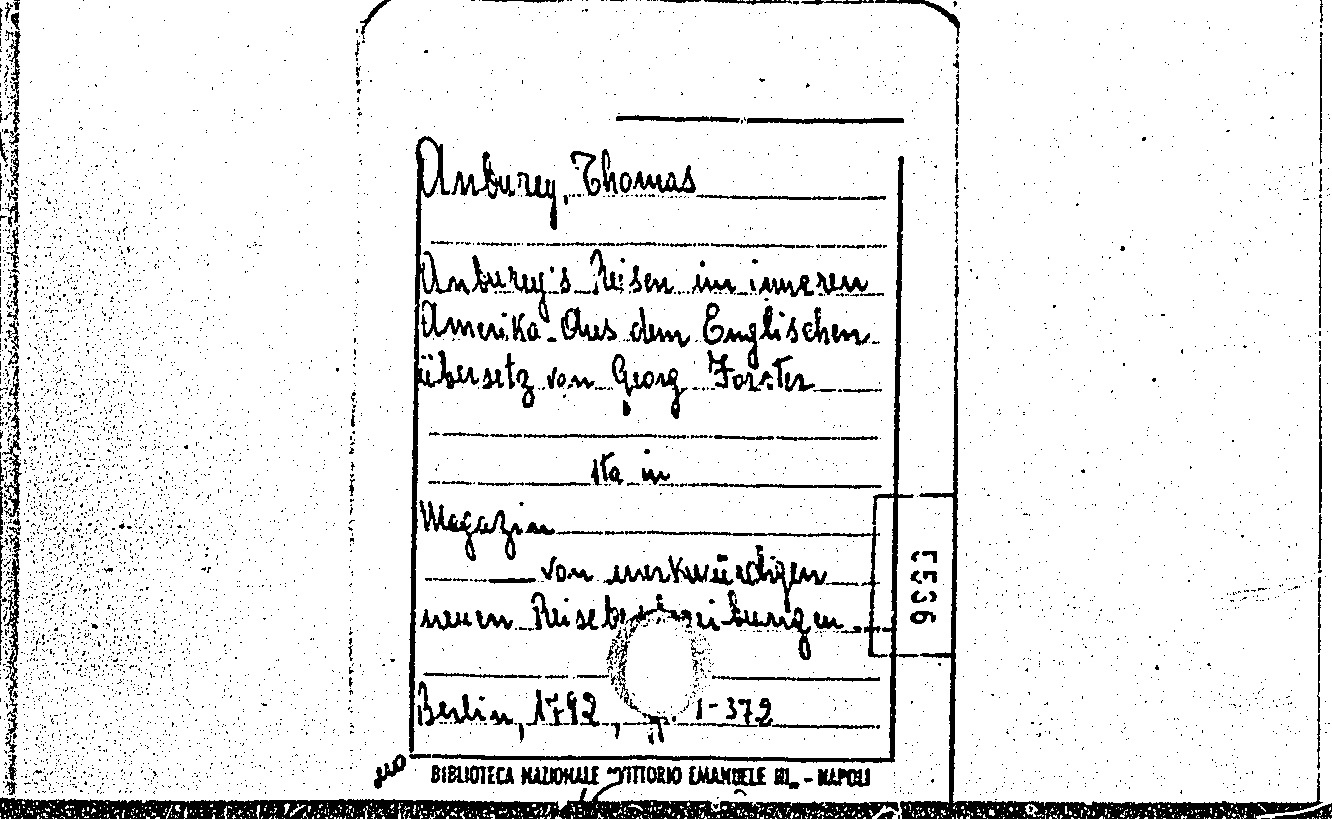 Anburey, Thomas
Anburey's Reisen im inneren
Amerika. Aus dem Englischen
übersetz von Georg Forster
sta in
Magazin
von merkwürdigen
neuen Reisebeschreibungen
Berlin, 1792, 1-372
BIBLIOTECA NAZIONALE "VITTORIO EMANUELE III" - NAPOLI